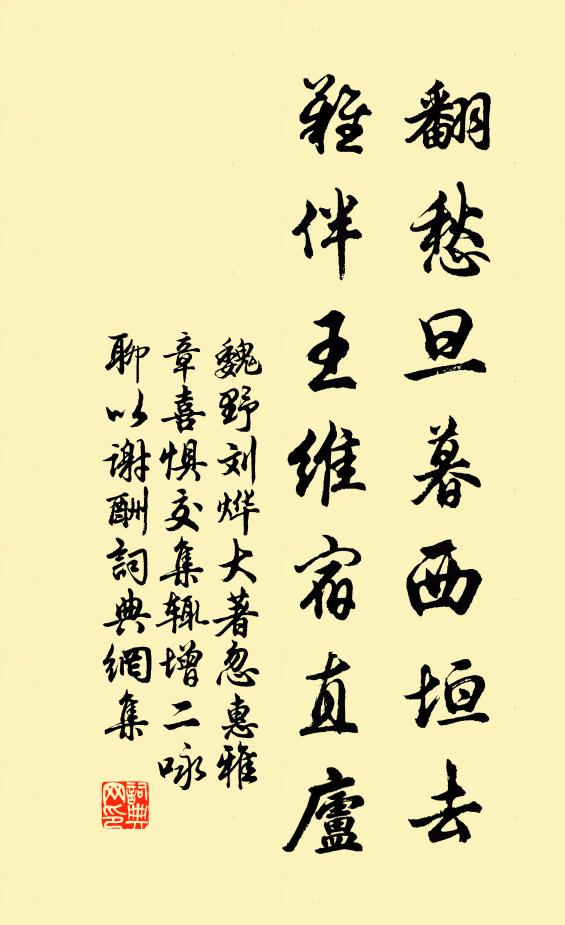 翻愁旦暮西垣去
难伴王维宿直廬
魏野刘烨大著忽惠雅
章喜惧交集辄增二咏
聊以谢酬詞典網集
詞典网印